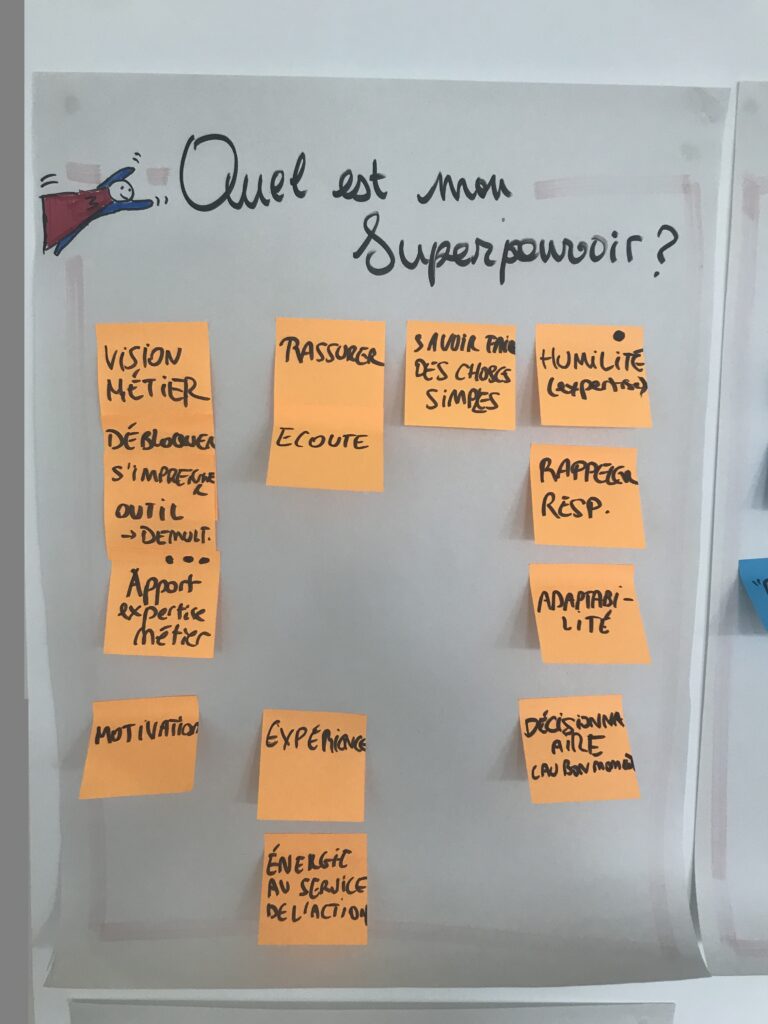 Quel est mon
Superpouvoir ?
VISION
MÉTIER
DÉBLOQUER
S'IMPREGNER
OUTIL
→ DEMULT.
Apport
expertise
métier
MOTIVATION
RASSURER
ECOUTE
EXPÉRIENCE
ÉNERGIE
AU SERVICE
DE L'ACTION
SAVOIR FAIRE
DES CHOSES
SIMPLES
HUMILITÉ
(expertise)
RAPPELER
RESP.
ADAPTABI-
LITÉ
DÉCISIONNA
AIRE
(AU BON MOMENT)